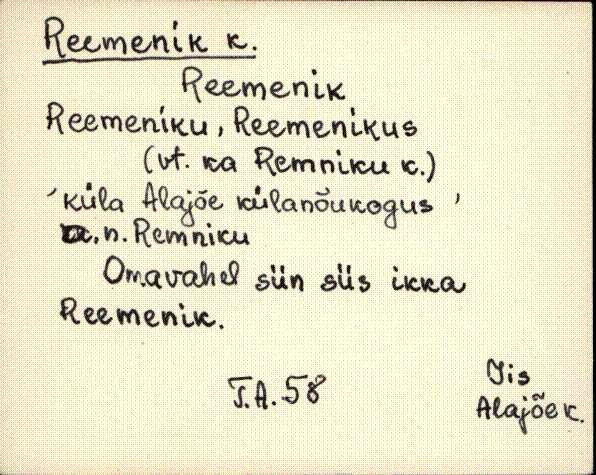 Reemenik k.
Reemenik
Reemeniku, Reemenikus
(vt. ka Remniku k.)
'küla Alajõe külanõukogus'
a.n. Remniku
Omavahel siin siis ikka
Reemenik.
T.A. 58
Iis
Alajõe k.